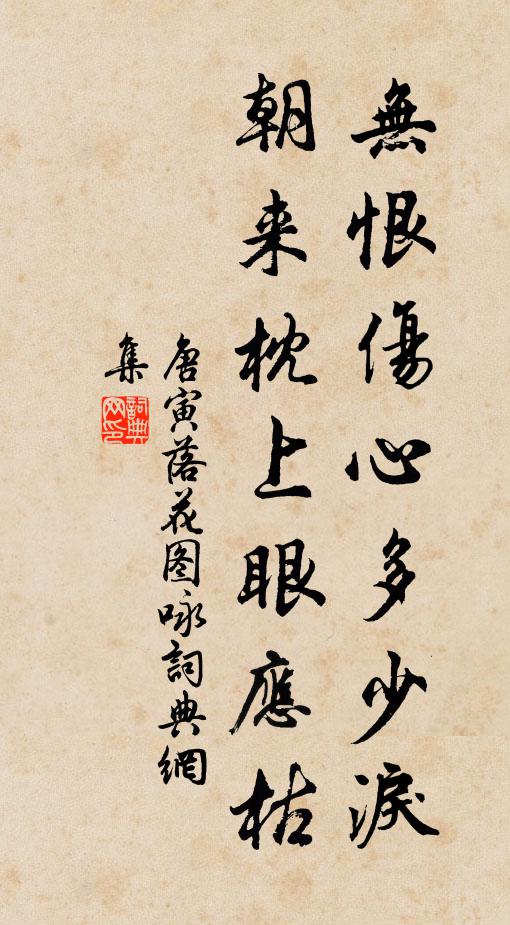 無恨傷心多少淚
朝来枕上眼應枯
唐寅落花图咏詞典網
集
詞典
网印